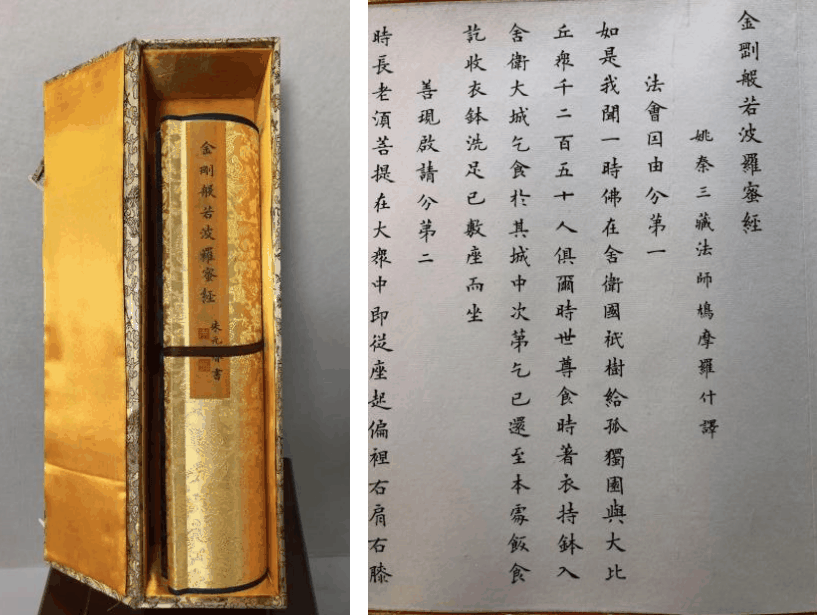 金剛般若波羅蜜經
書
金剛般若波羅蜜經
姚秦三藏法師鳩摩羅什譯
法會囙由分第一
如是我聞一時佛在舍衛國祇樹給孤獨園與大比
丘眾千二百五十人俱爾時世尊食時著衣持鉢入
舍衛大城乞食於其城中次第乞已還至本處飯食
訖收衣鉢洗足已敷座而坐
善現啟請分第二
時長老湏菩提在大眾中即從座起偏袒右肩右膝